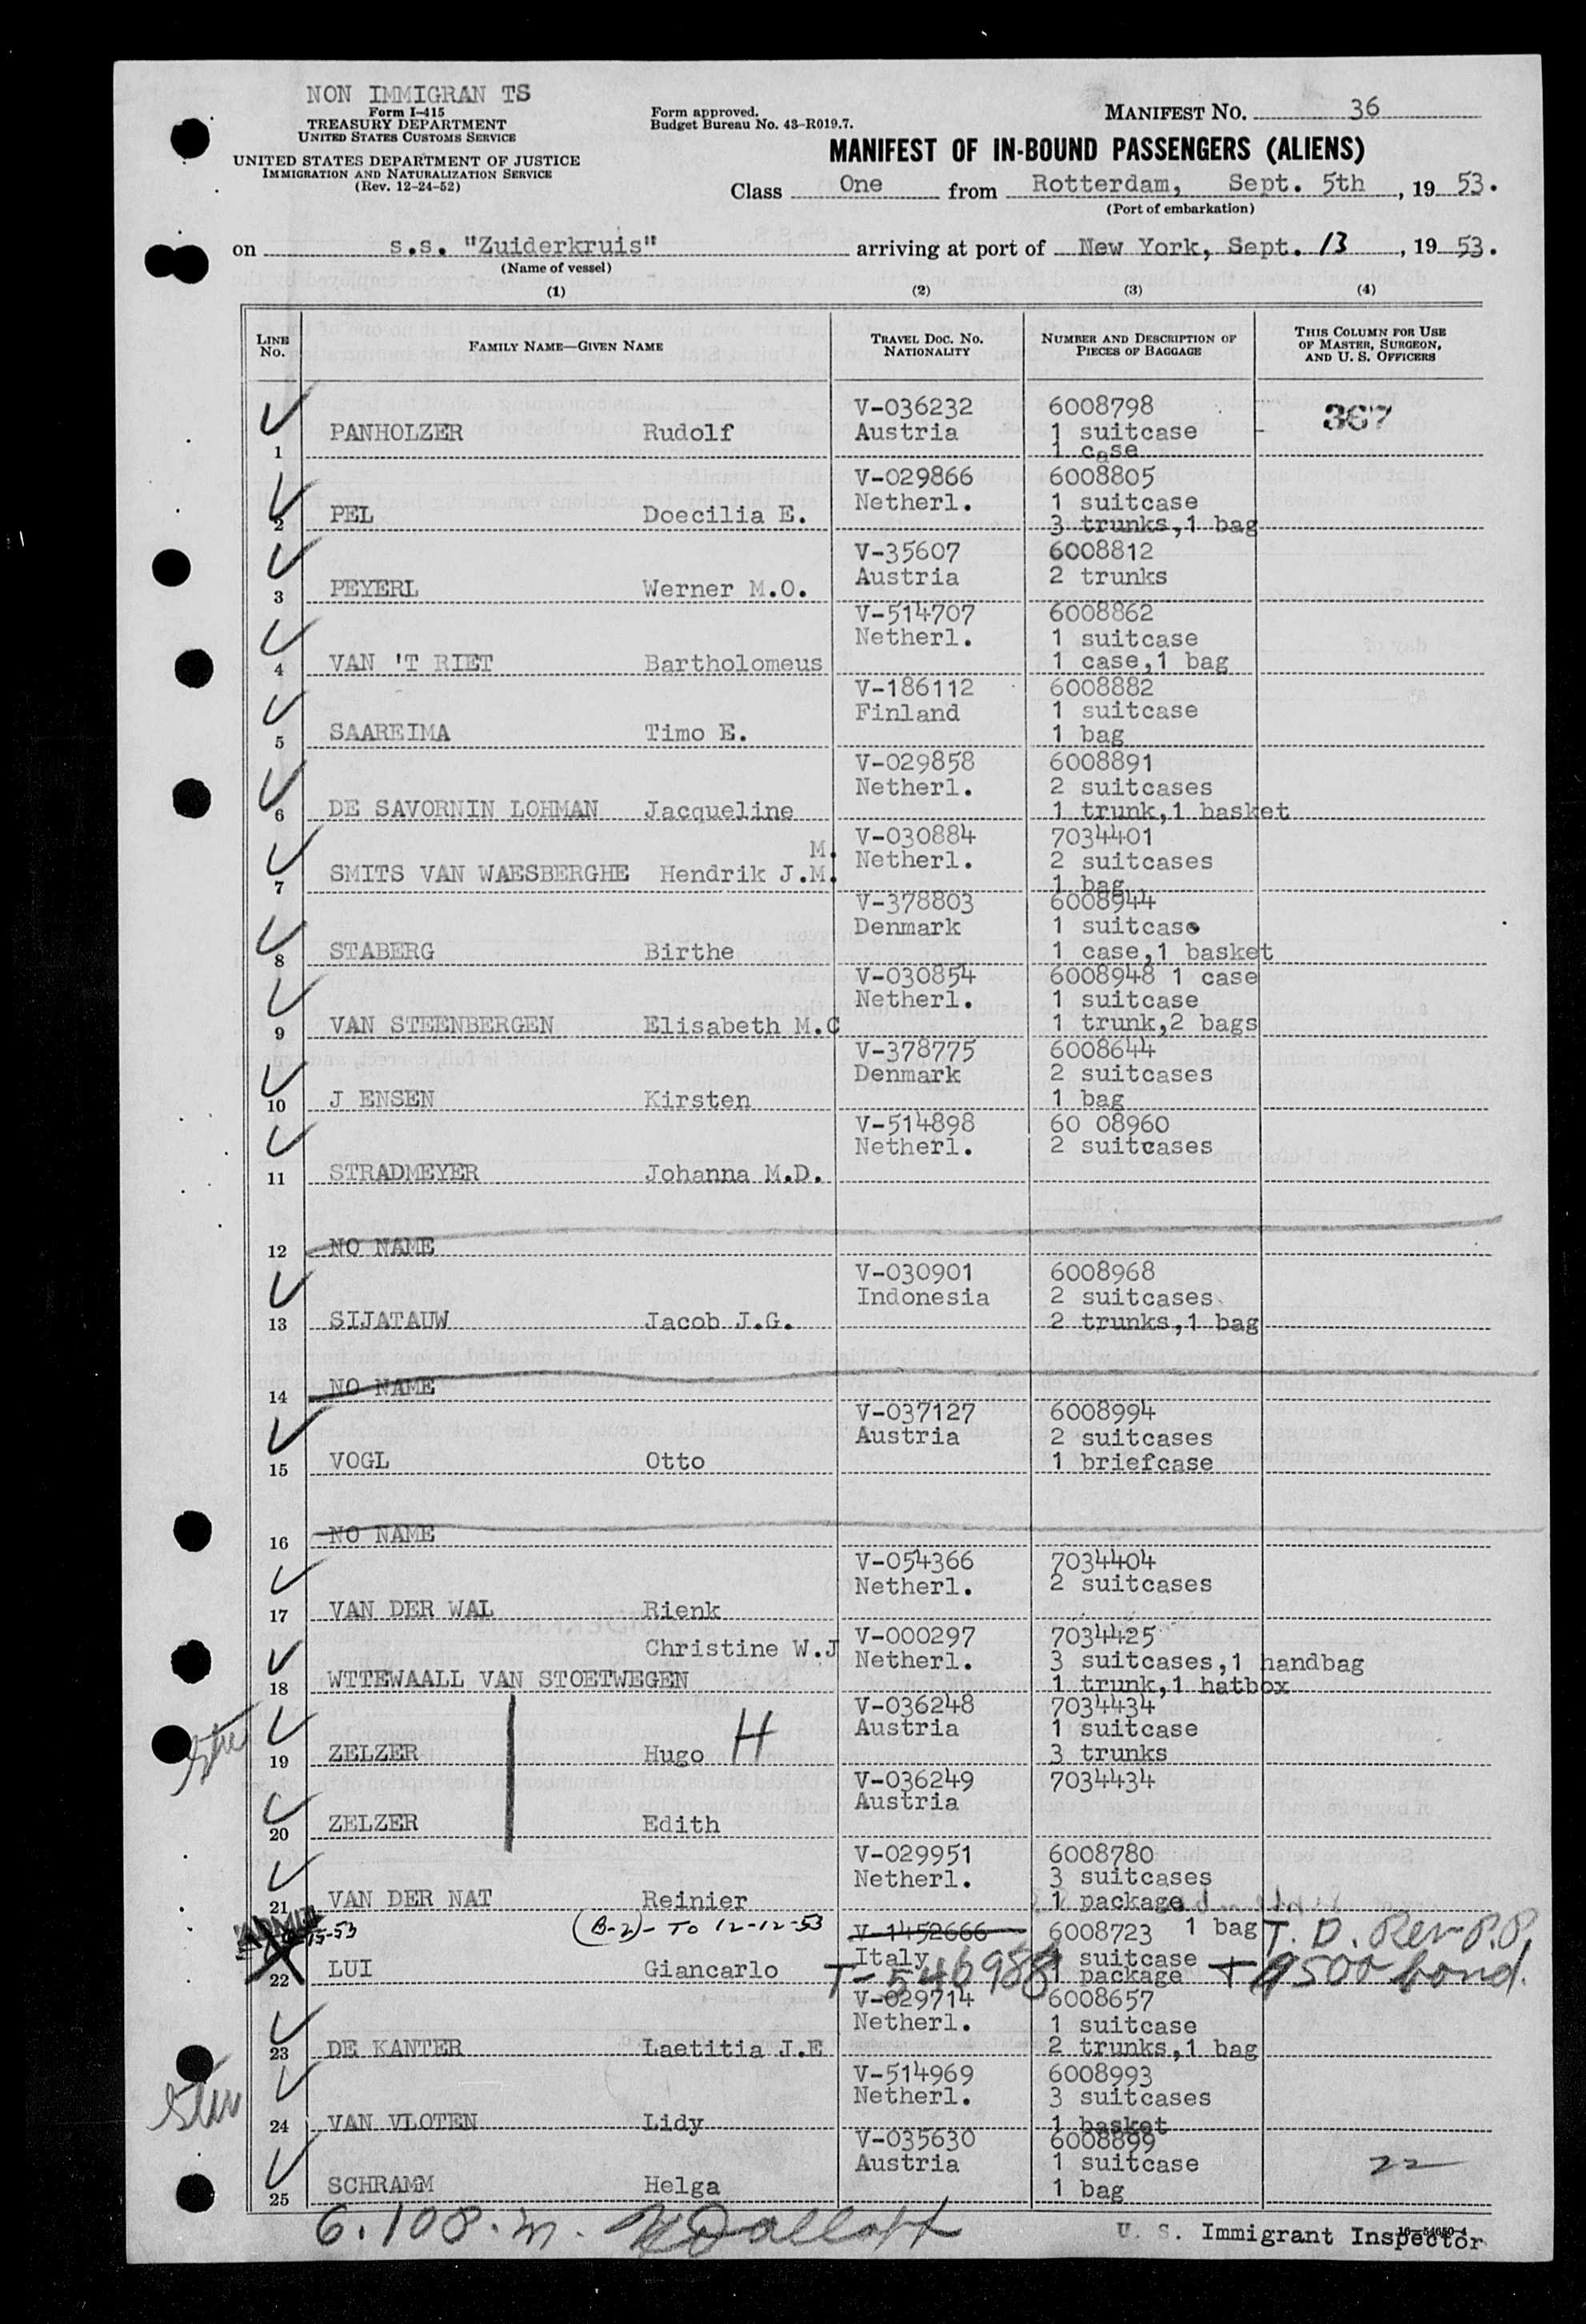 NON IMMIGRAN TS
Form I-415
TREASURY DEPARTMENT
UNITED STATES CUSTOMS SERVICE
UNITED STATES DEPARTMENT OF JUSTICE
IMMIGRATION AND NATURALIZATION SERVICE
(Rev. 12-24-52)
Form approved.
Budget Bureau No. 43-R019.7.
MANIFEST NO. 36
MANIFEST OF IN-BOUND PASSENGERS (ALIENS)
Class One from Rotterdam, Sept. 5th, 19 53.
(Port of embarkation)
on s.s. "Zuiderkruis" arriving at port of New York, Sept. 13, 19 53.
(Name of vessel)
(1) (2) (3) (4)
LINE No. FAMILY NAME—GIVEN NAME TRAVEL DOC. NO. NATIONALITY NUMBER AND DESCRIPTION OF PIECES OF BAGGAGE THIS COLUMN FOR USE OF MASTER, SURGEON, AND U. S. OFFICERS
V-036232 6008798 367
1 PANHOLZER Rudolf Austria 1 suitcase
1 case
V-029866 6008805
Netherl. 1 suitcase
2 PEL Doecilia E. 3 trunks,1 bag
V-35607 6008812
Austria 2 trunks
3 PEYERL Werner M.O.
V-514707 6008862
Netherl. 1 suitcase
4 VAN 'T RIET Bartholomeus 1 case,1 bag
V-186112 6008882
Finland 1 suitcase
5 SAAREIMA Timo E. 1 bag
V-029858 6008891
Netherl. 2 suitcases
6 DE SAVORNIN LOHMAN Jacqueline 1 trunk,1 basket
V-030884 7034401
M. Netherl. 2 suitcases
7 SMITS VAN WAESBERGHE Hendrik J.M. 1 bag
V-378803 6008944
Denmark 1 suitcase
8 STABERG Birthe 1 case,1 basket
V-030854 6008948 1 case
Netherl. 1 suitcase
9 VAN STEENBERGEN Elisabeth M.C 1 trunk,2 bags
V-378775 6008644
Denmark 2 suitcases
10 J ENSEN Kirsten 1 bag
V-514898 60 08960
Netherl. 2 suitcases
11 STRADMEYER Johanna M.D.
12 NO NAME
V-030901 6008968
Indonesia 2 suitcases
13 SIJATAUW Jacob J.G. 2 trunks,1 bag
14 NO NAME
V-037127 6008994
Austria 2 suitcases
15 VOGL Otto 1 briefcase
16 NO NAME
V-054366 7034404
Netherl. 2 suitcases
17 VAN DER WAL Rienk
Christine W.J V-000297 7034425
Netherl. 3 suitcases,1 handbag
18 WTTEWAALL VAN STOETWEGEN 1 trunk,1 hatbox
V-036248 7034434
Austria 1 suitcase
19 ZELZER Hugo H 3 trunks
V-036249 7034434
Austria
20 ZELZER Edith
V-029951 6008780
Netherl. 3 suitcases
21 VAN DER NAT Reinier 1 package
(B-2)- TO 12-12-53 V-1452666 6008723 1 bag T. D. Rev P.P.
Italy 1 suitcase
22 LUI Giancarlo T-546988 1 package + $500 bond.
V-029714 6008657
Netherl. 1 suitcase
23 DE KANTER Laetitia J.E 2 trunks,1 bag
V-514969 6008993
Netherl. 3 suitcases
24 VAN VLOTEN Lidy 1 basket
V-035630 6008899
Austria 1 suitcase 22
25 SCHRAMM Helga 1 bag
U. S. Immigrant Inspector